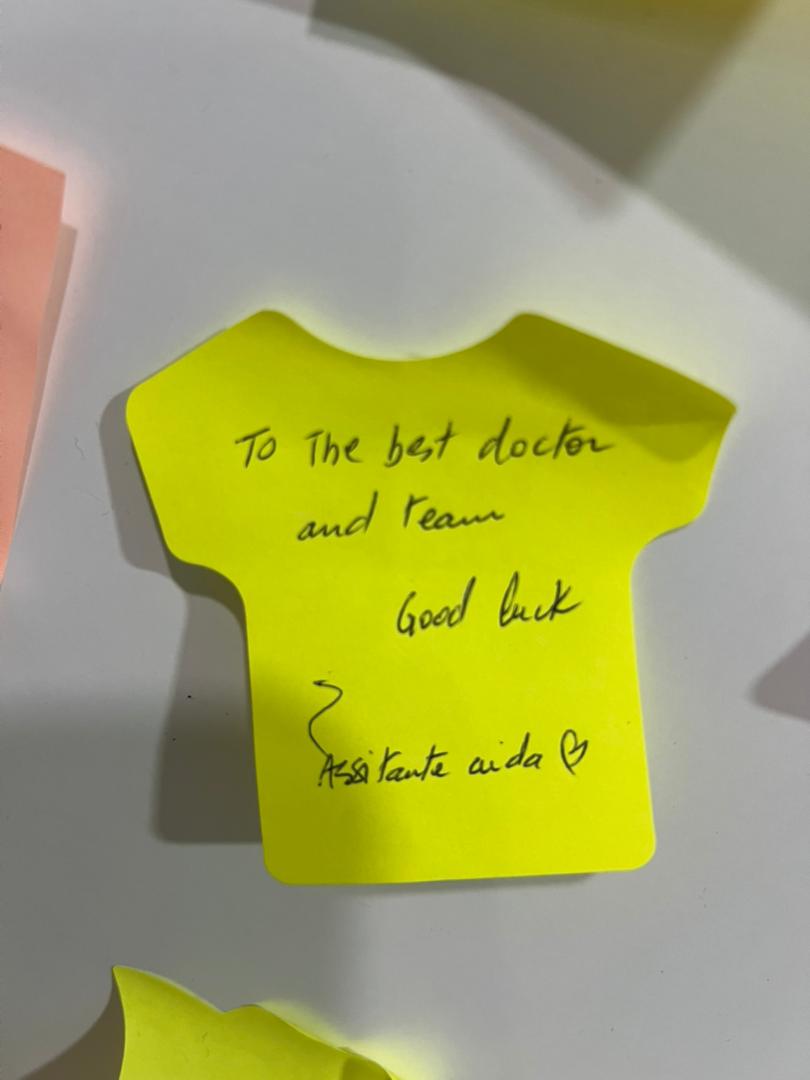 To The best doctor
and team
Good luck
Assitante aida ♡